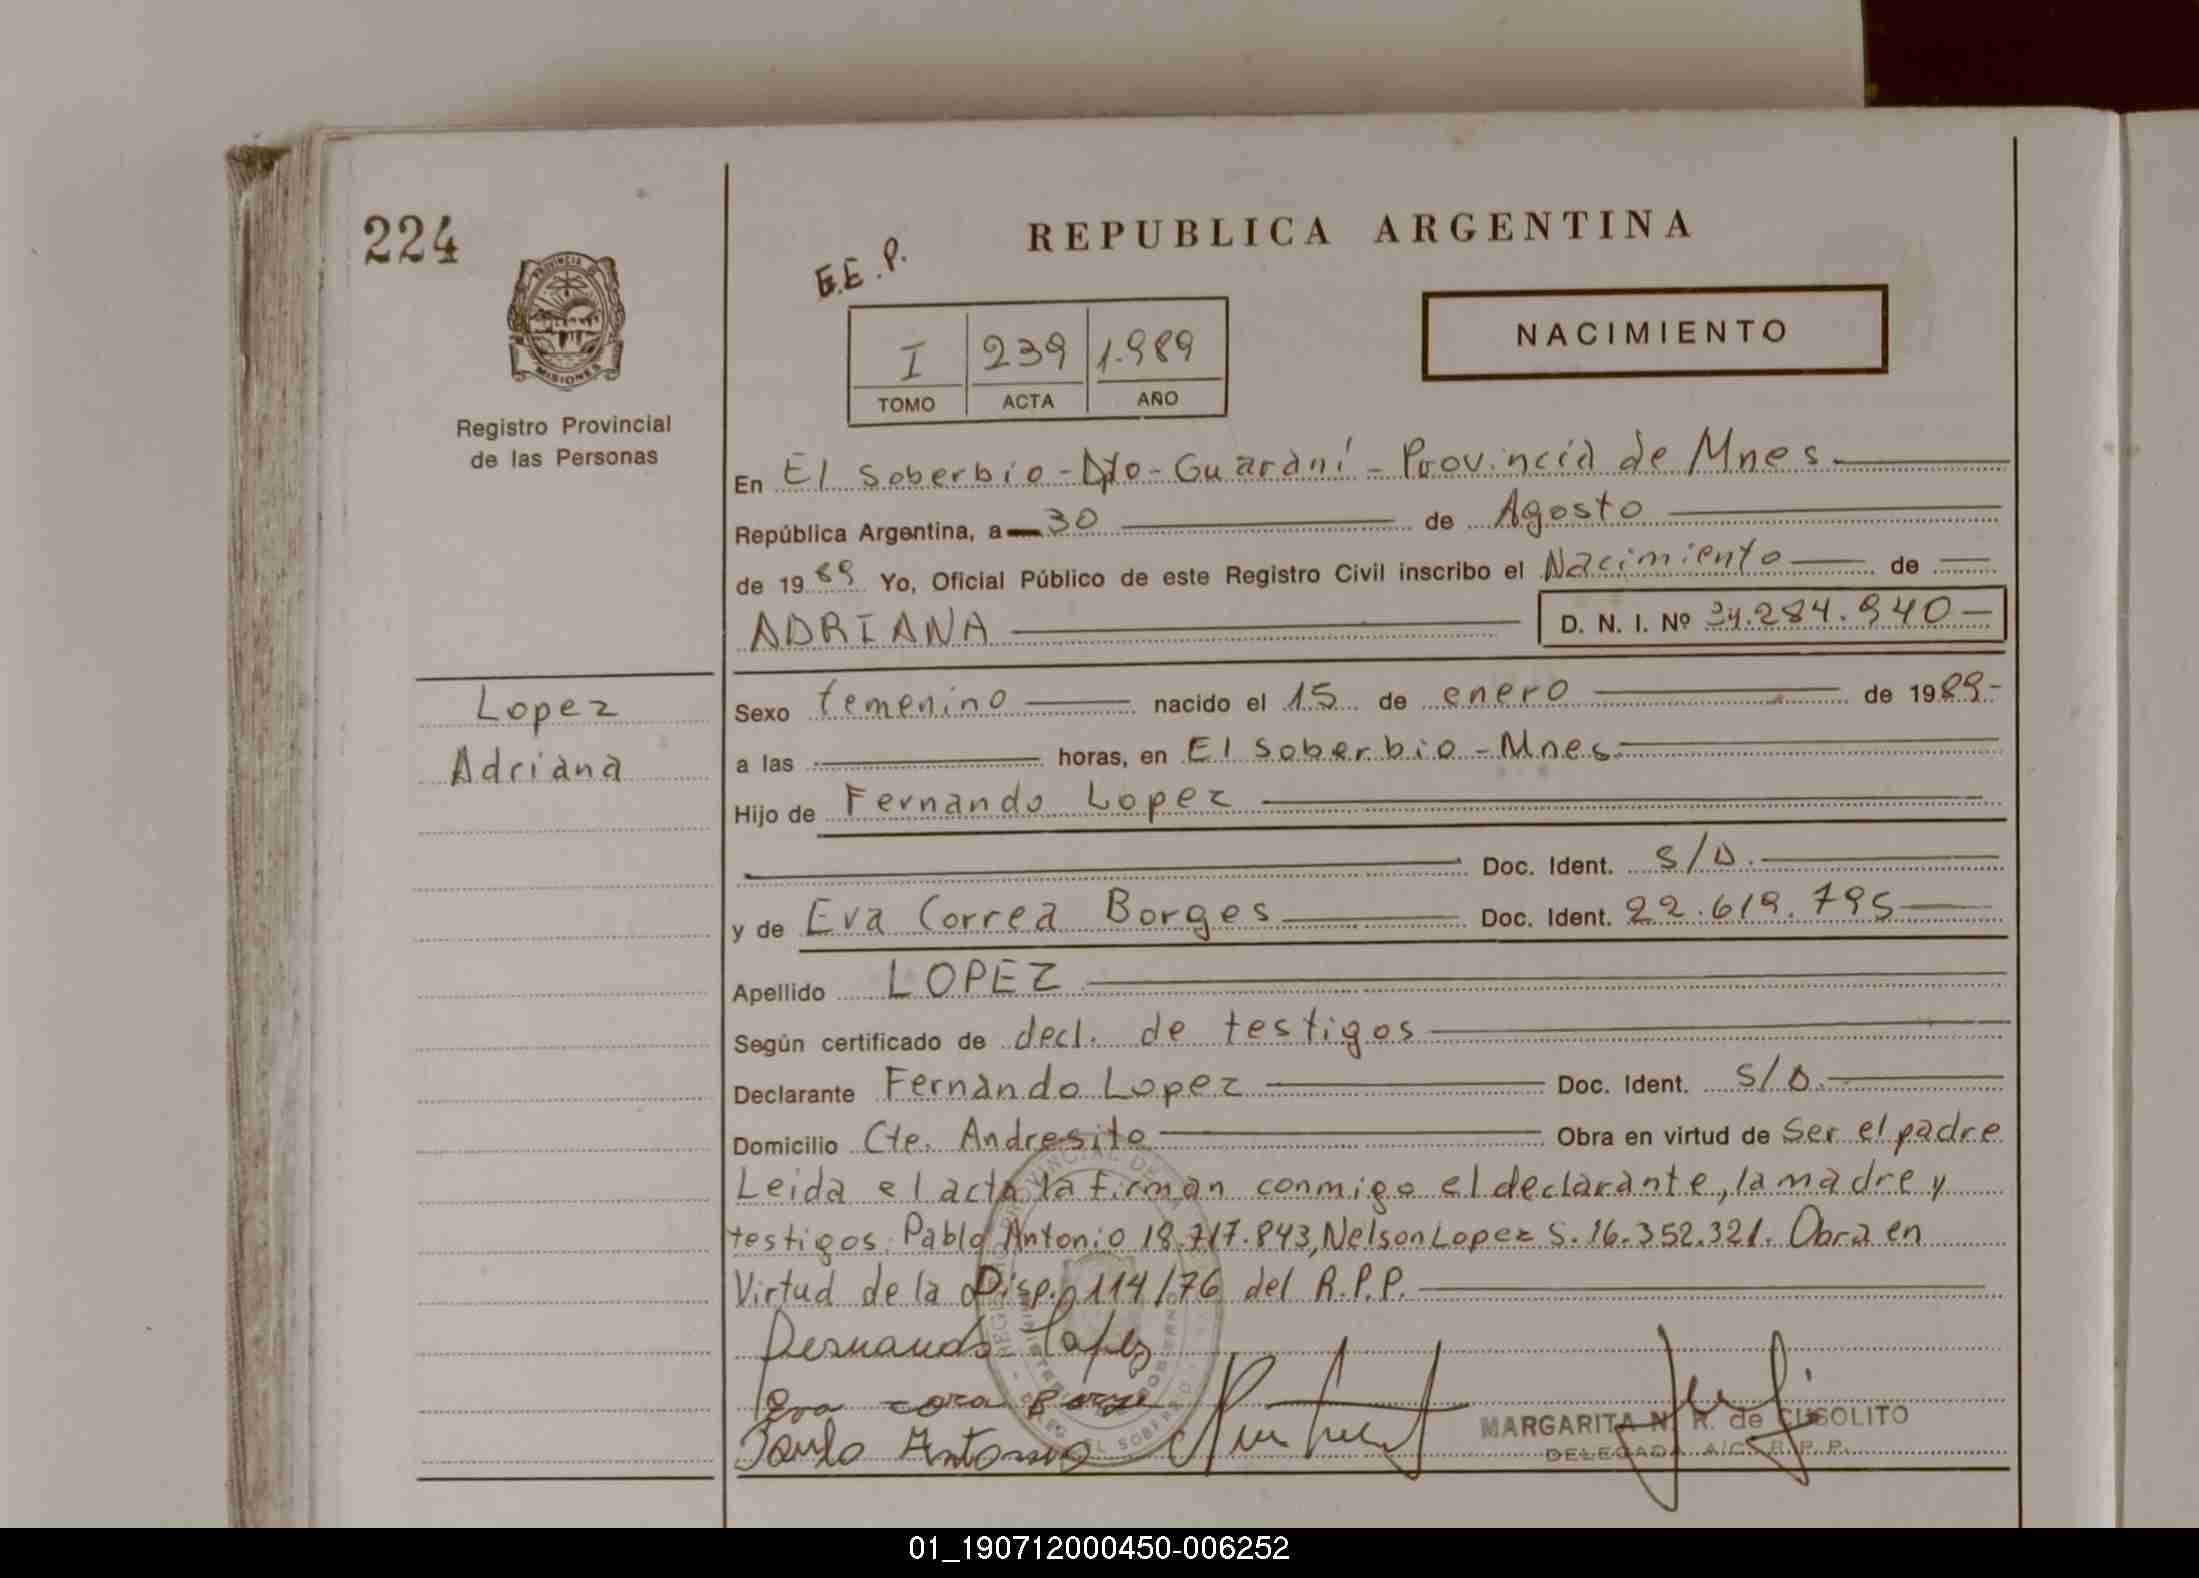 224
REPUBLICA ARGENTINA
E.E.P.
PROVINCIA DE
MISIONES
Registro Provincial
de las Personas
I 239 1.989
TOMO ACTA AÑO
NACIMIENTO
En El Soberbio - Dto - Guaraní - Provincia de Mnes
República Argentina, a 30 de Agosto
de 1989 Yo, Oficial Público de este Registro Civil inscribo el Nacimiento de
ADRIANA D. N. I. Nº 34.284.940
Lopez
Adriana
Sexo femenino nacido el 15 de enero de 1989.-
a las horas, en El Soberbio - Mnes
Hijo de Fernando Lopez
Doc. Ident. S/D.
y de Eva Correa Borges Doc. Ident. 22.619.795
Apellido LOPEZ
Según certificado de decl. de testigos
Declarante Fernando Lopez Doc. Ident. S/D.
Domicilio Cte. Andresito Obra en virtud de Ser el padre
Leida el acta la firman conmigo el declarante, la madre y
testigos. Pablo Antonio 18.717.843, Nelson Lopez S. 16.352.321. Obra en
Virtud de la Disp. 114/76 del R.P.P.
Fernando Lopez
Eva
Paulo Antonio
MARGARITA N. R. de CUSOLITO
DELEGADA A/C R. P. P.
01_190712000450-006252